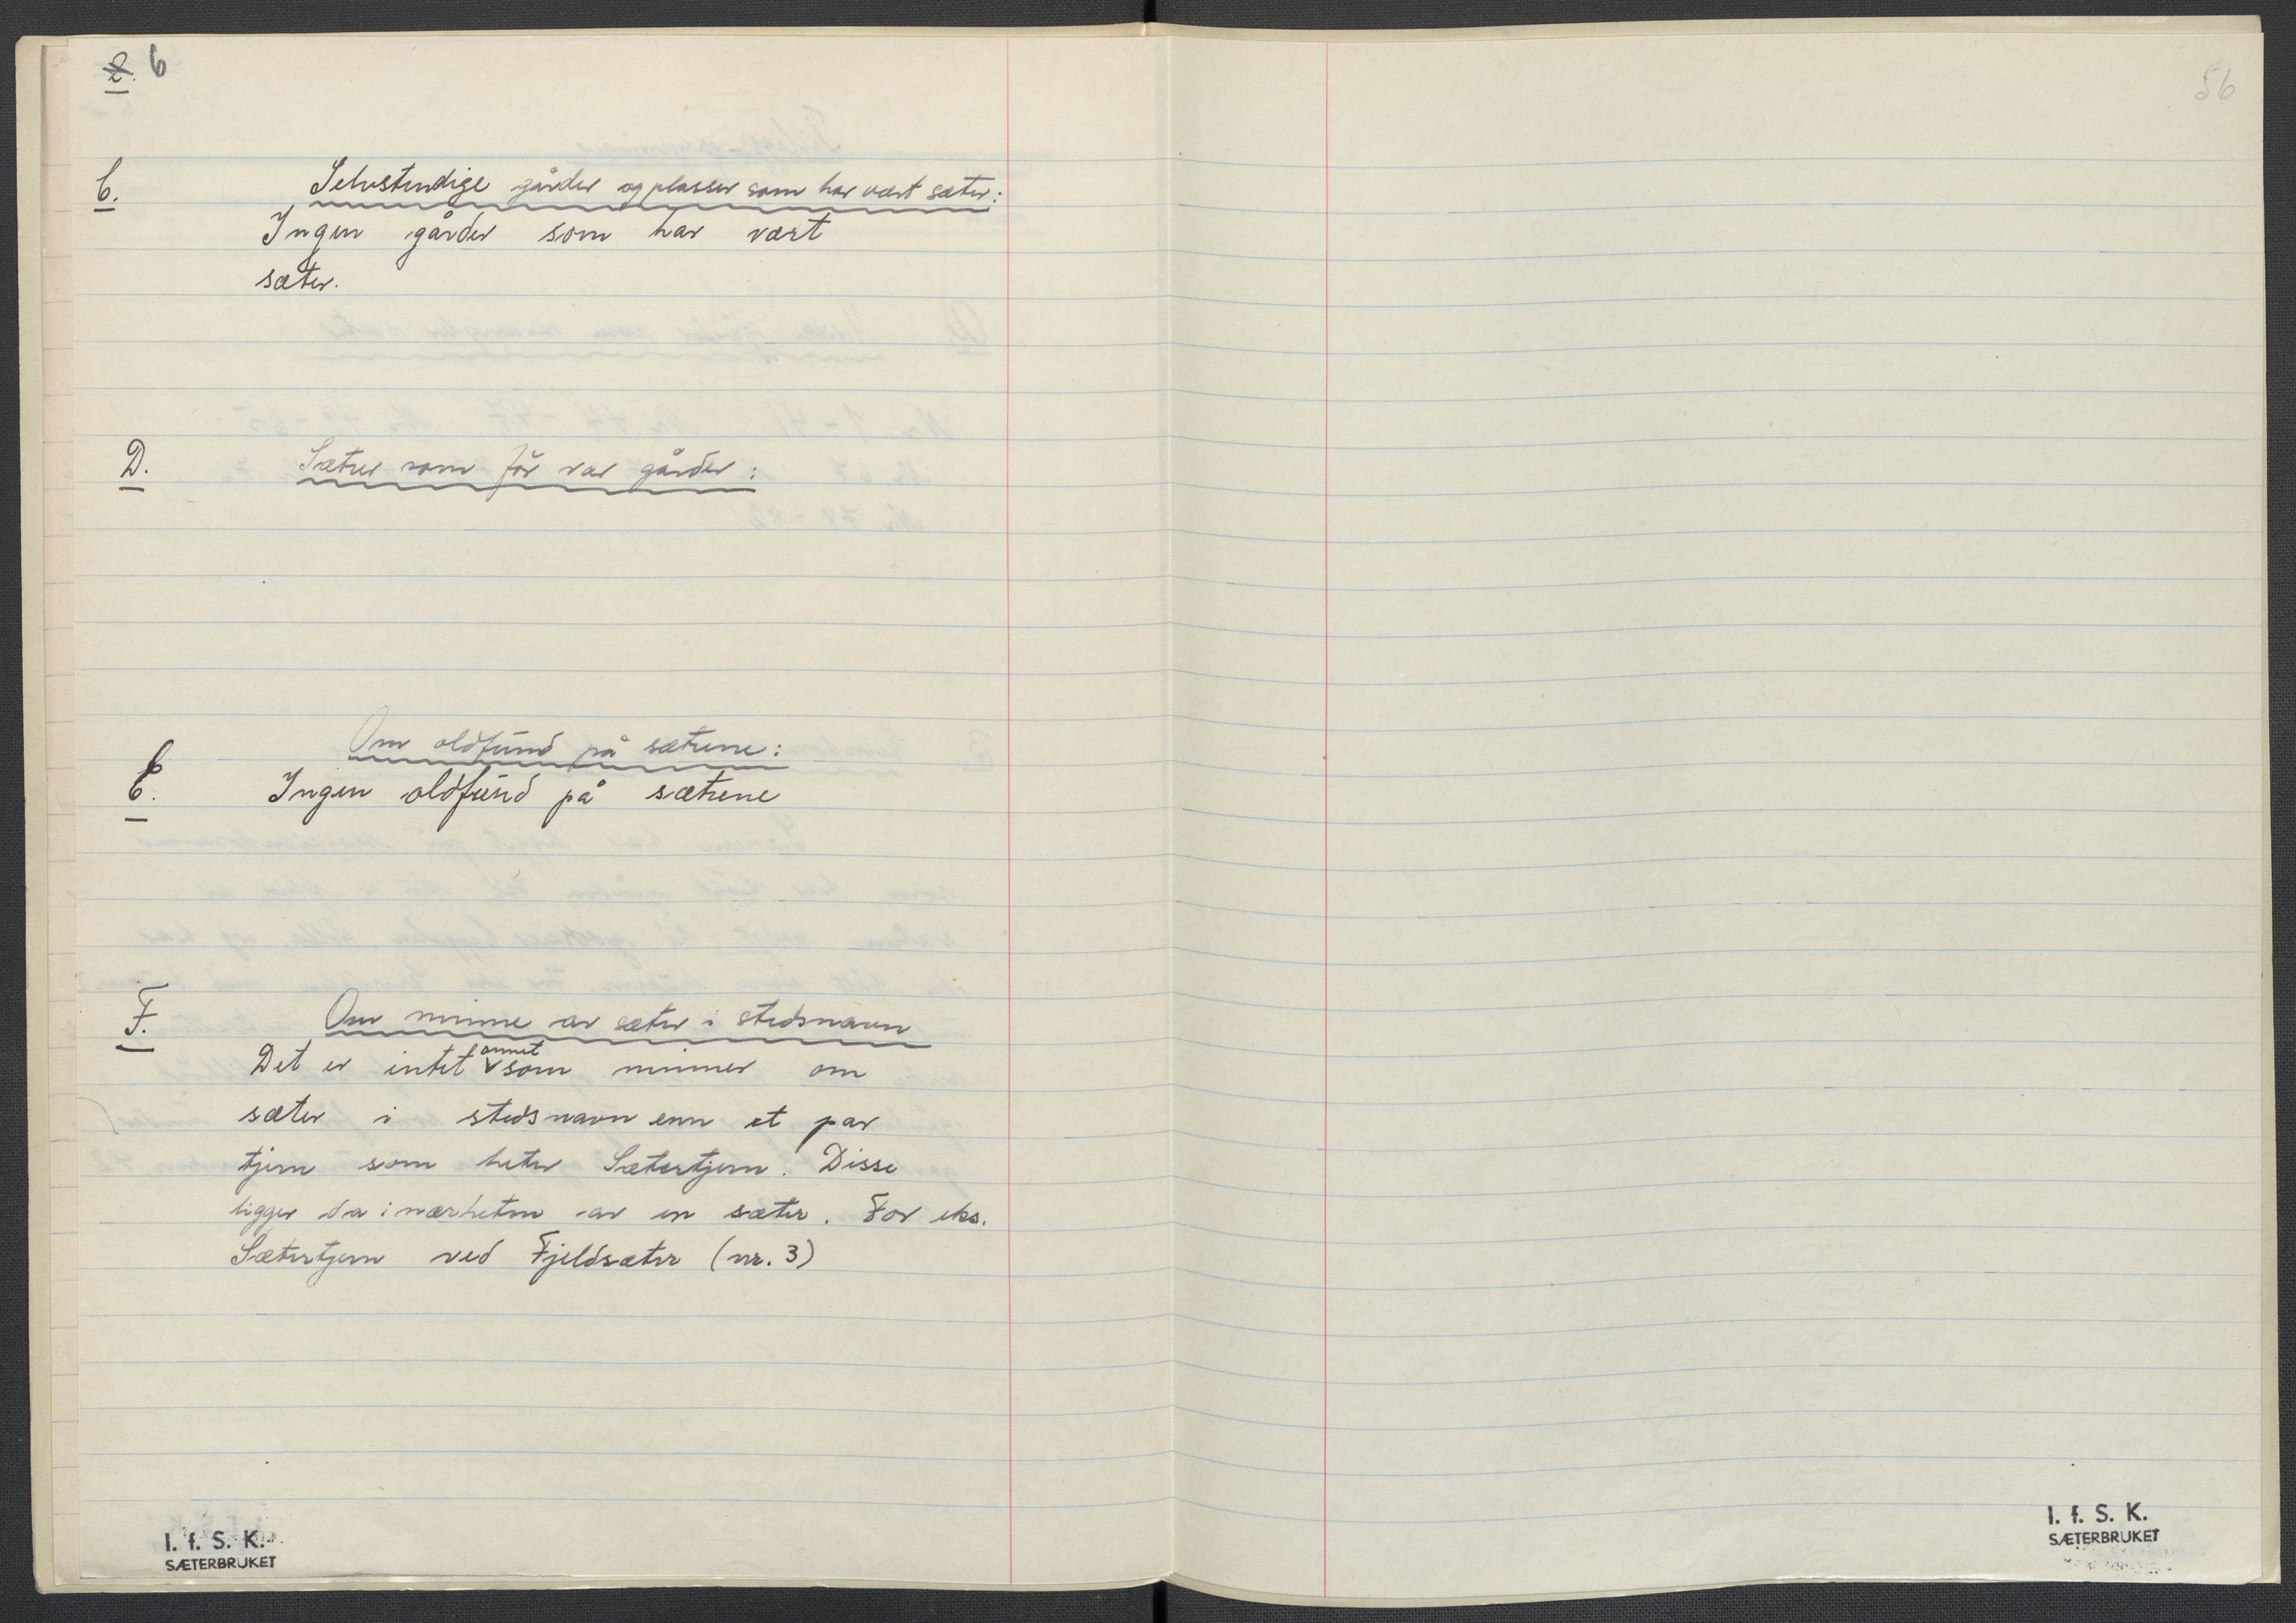 2. 6
56
C. Selvstendige gårder og plasser som har vært sæter:
Ingen gårder som har vært
sæter.
D. Sætrer som før var gårder:
Om oldfund på sætrene:
E. Ingen oldfund på sætrene
F. Om minne av sæter i stedsnavn
Det er intet annet som minner om
sæter i stedsnavn enn et par
tjern som heter Sætertjern. Disse
ligger da i nærheten av en sæter. For eks.
Sætertjern ved Fjeldsæter (nr. 3)
I. f. S. K.
SÆTERBRUKET
I. f. S. K.
SÆTERBRUKET